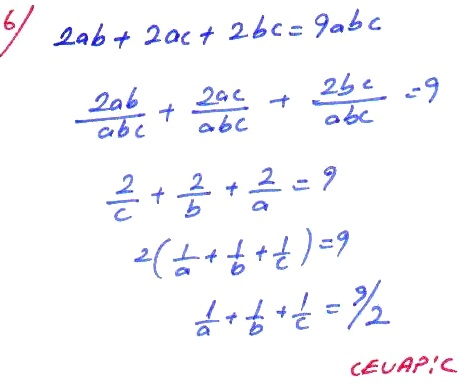 6/ 2ab + 2ac + 2bc = 9abc
2ab/abc + 2ac/abc + 2bc/abc = 9
2/c + 2/b + 2/a = 9
2(1/a + 1/b + 1/c) = 9
1/a + 1/b + 1/c = 9/2
CEVAP:C